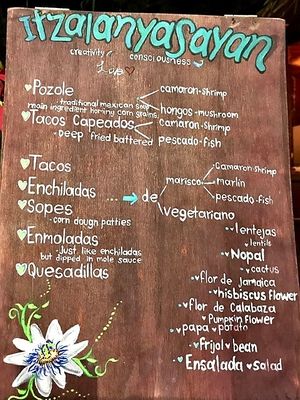 Itzalanyasayan
creativity consciousness
Love
Pozole
camaron-shrimp
-traditional mexican soup
main ingredient hominy corn grains
hongos-mushroom
Tacos Capeados
camaron-shrimp
-Deep fried battered
pescado-fish
Tacos
camaron-shrimp
Enchiladas
marisco
marlín
Sopes
de
pescado-fish
-corn dough patties
vegetariano
Enmoladas
lentejas
-Just like enchiladas
lentils
but dipped in mole sauce
Nopal
Quesadillas
cactus
flor de Jamaica
hisbiscus flower
flor de Calabaza
Pumpkin flower
papa potato
Frijol bean
Ensalada salad